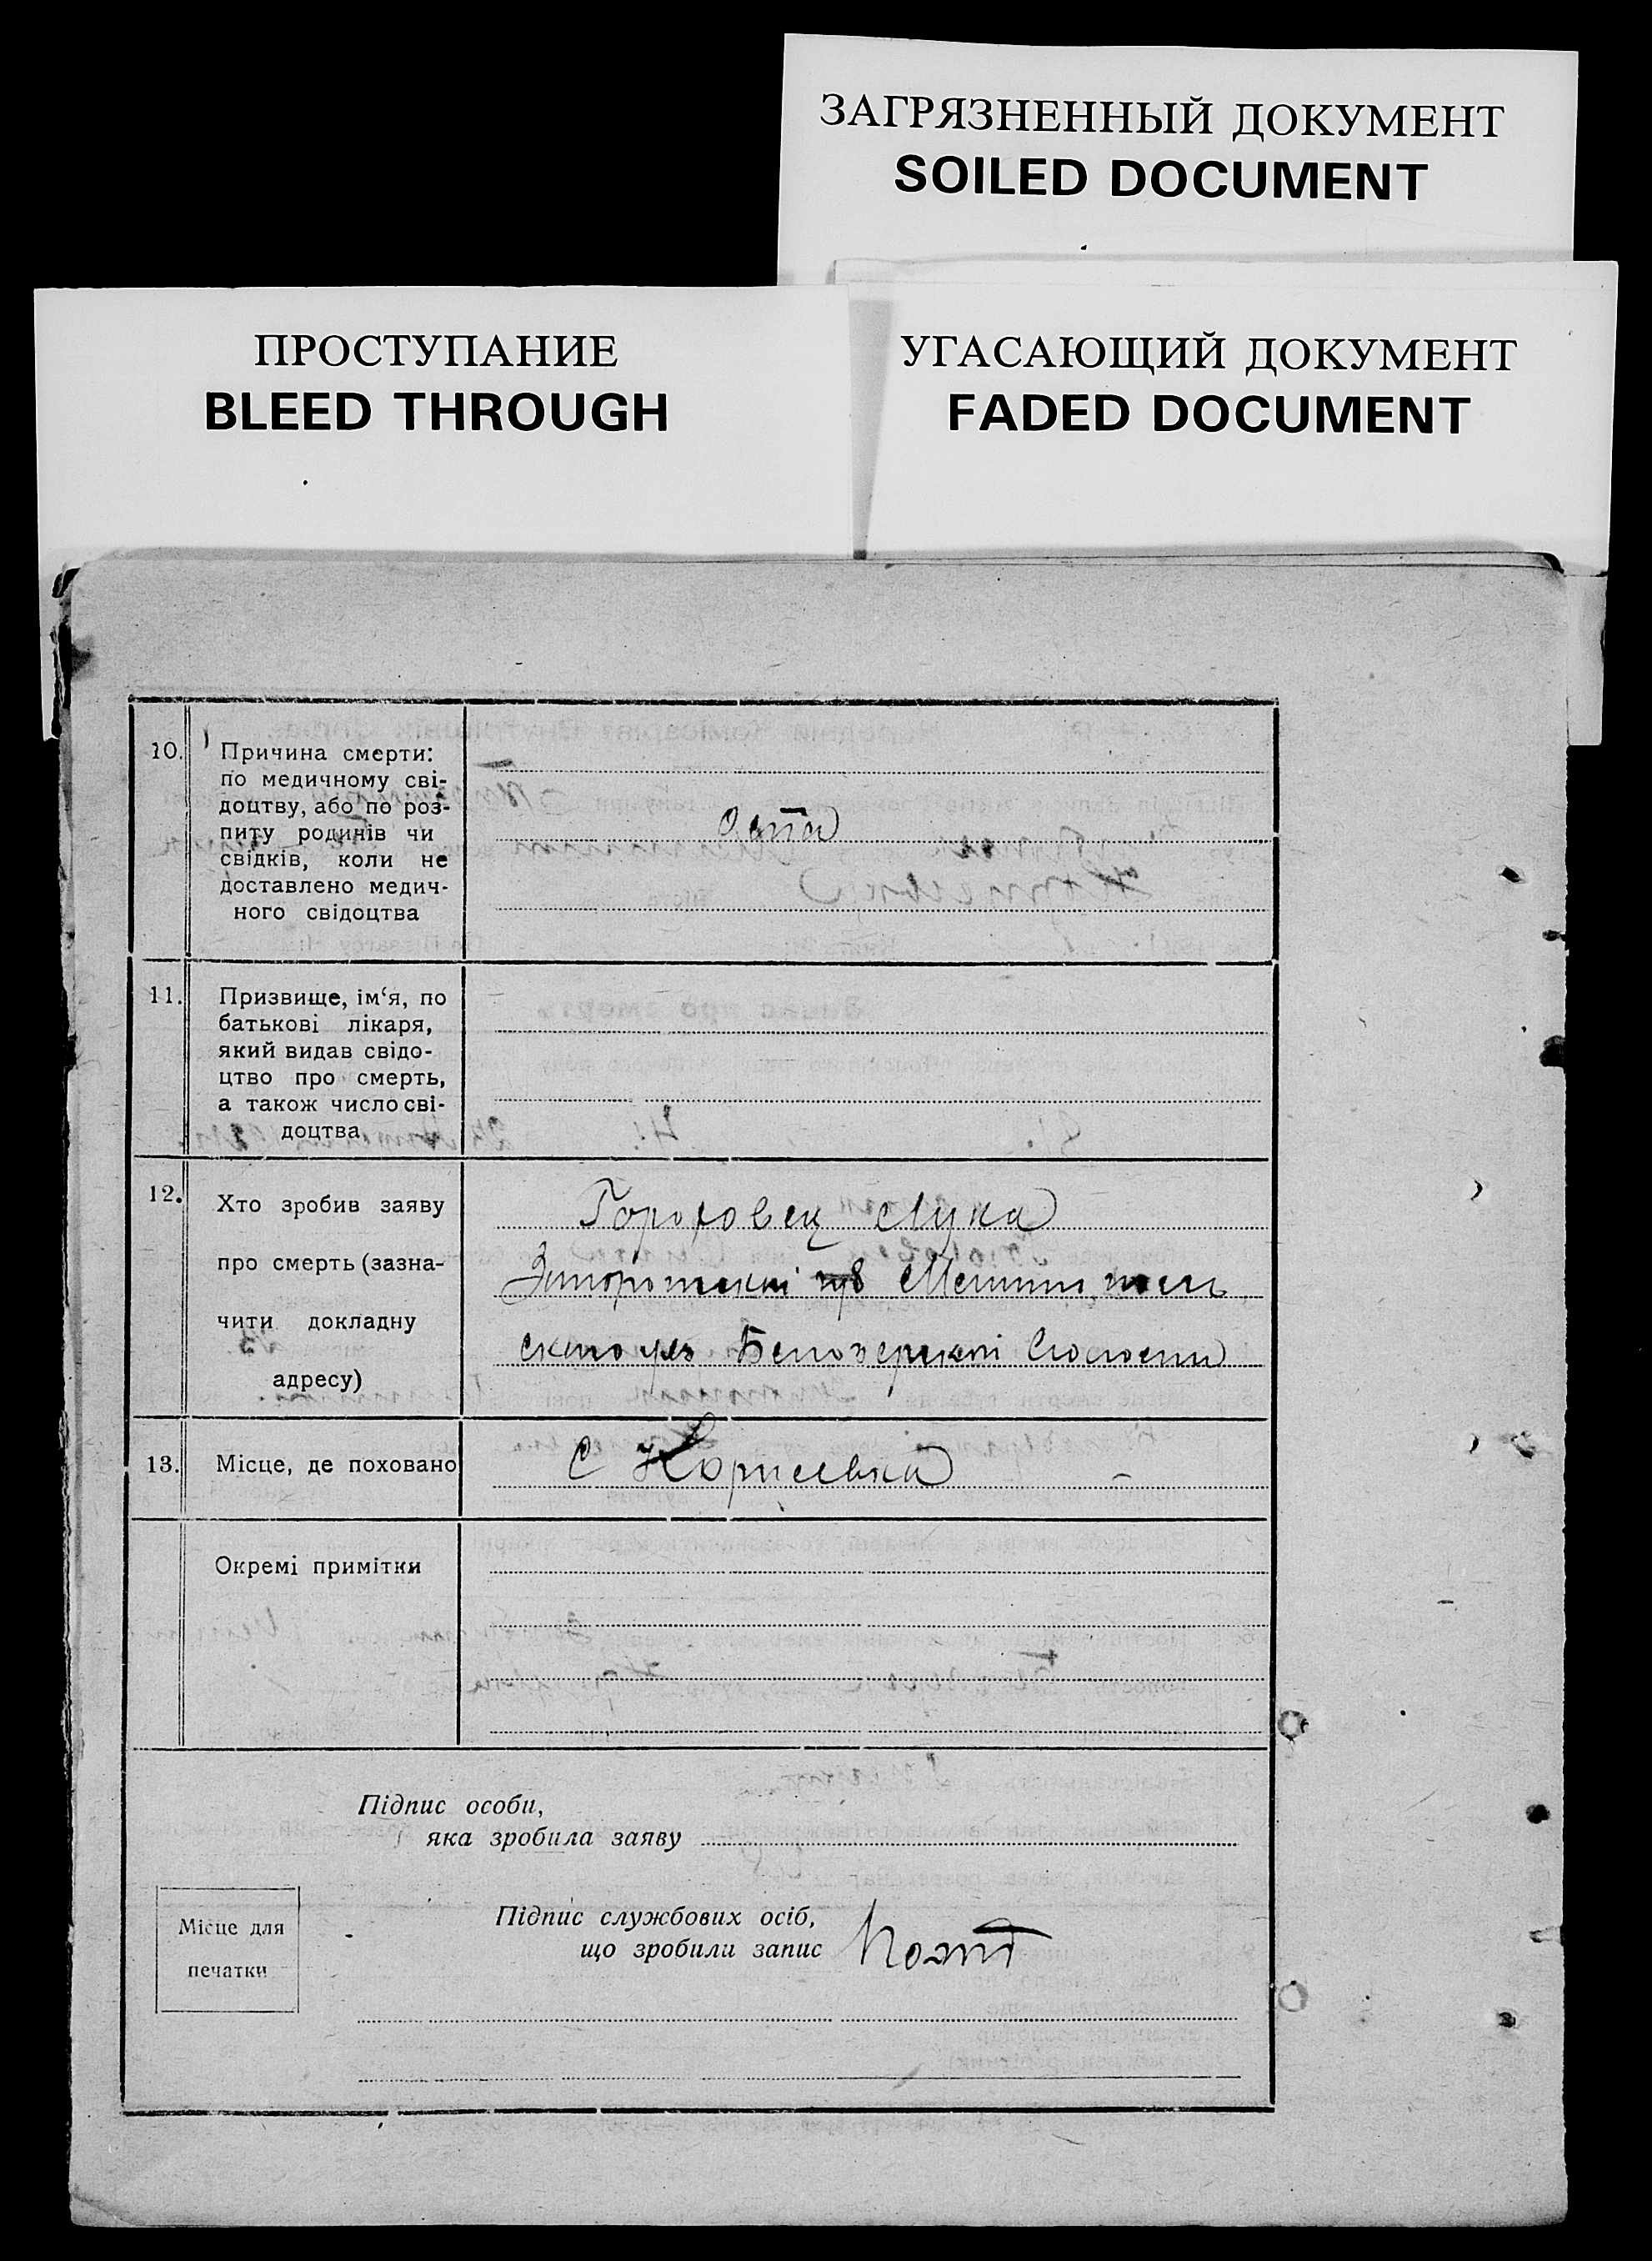 ЗАГРЯЗНЕННЫЙ ДОКУМЕНТ
SOILED DOCUMENT
ПРОСТУПАНИЕ
BLEED THROUGH
УГАСАЮЩИЙ ДОКУМЕНТ
FADED DOCUMENT
10. Причина смерти:
по медичному сві-
доцтву, або по роз-
питу родинів чи
свідків, коли не
доставлено медич-
ного свідоцтва
оспа
11. Призвище, ім‘я, по
батькові лікаря,
який видав свідо-
цтво про смерть,
а також число сві-
доцтва
12. Хто зробив заяву
про смерть (зазна-
чити докладну
адресу)
Гороховец Лука
губ
ского
13. Місце, де поховано
С
Окремі примітки
Підпис особи,
яка зробила заяву
Місце для
печатки
Підпис службових осіб,
що зробили запис